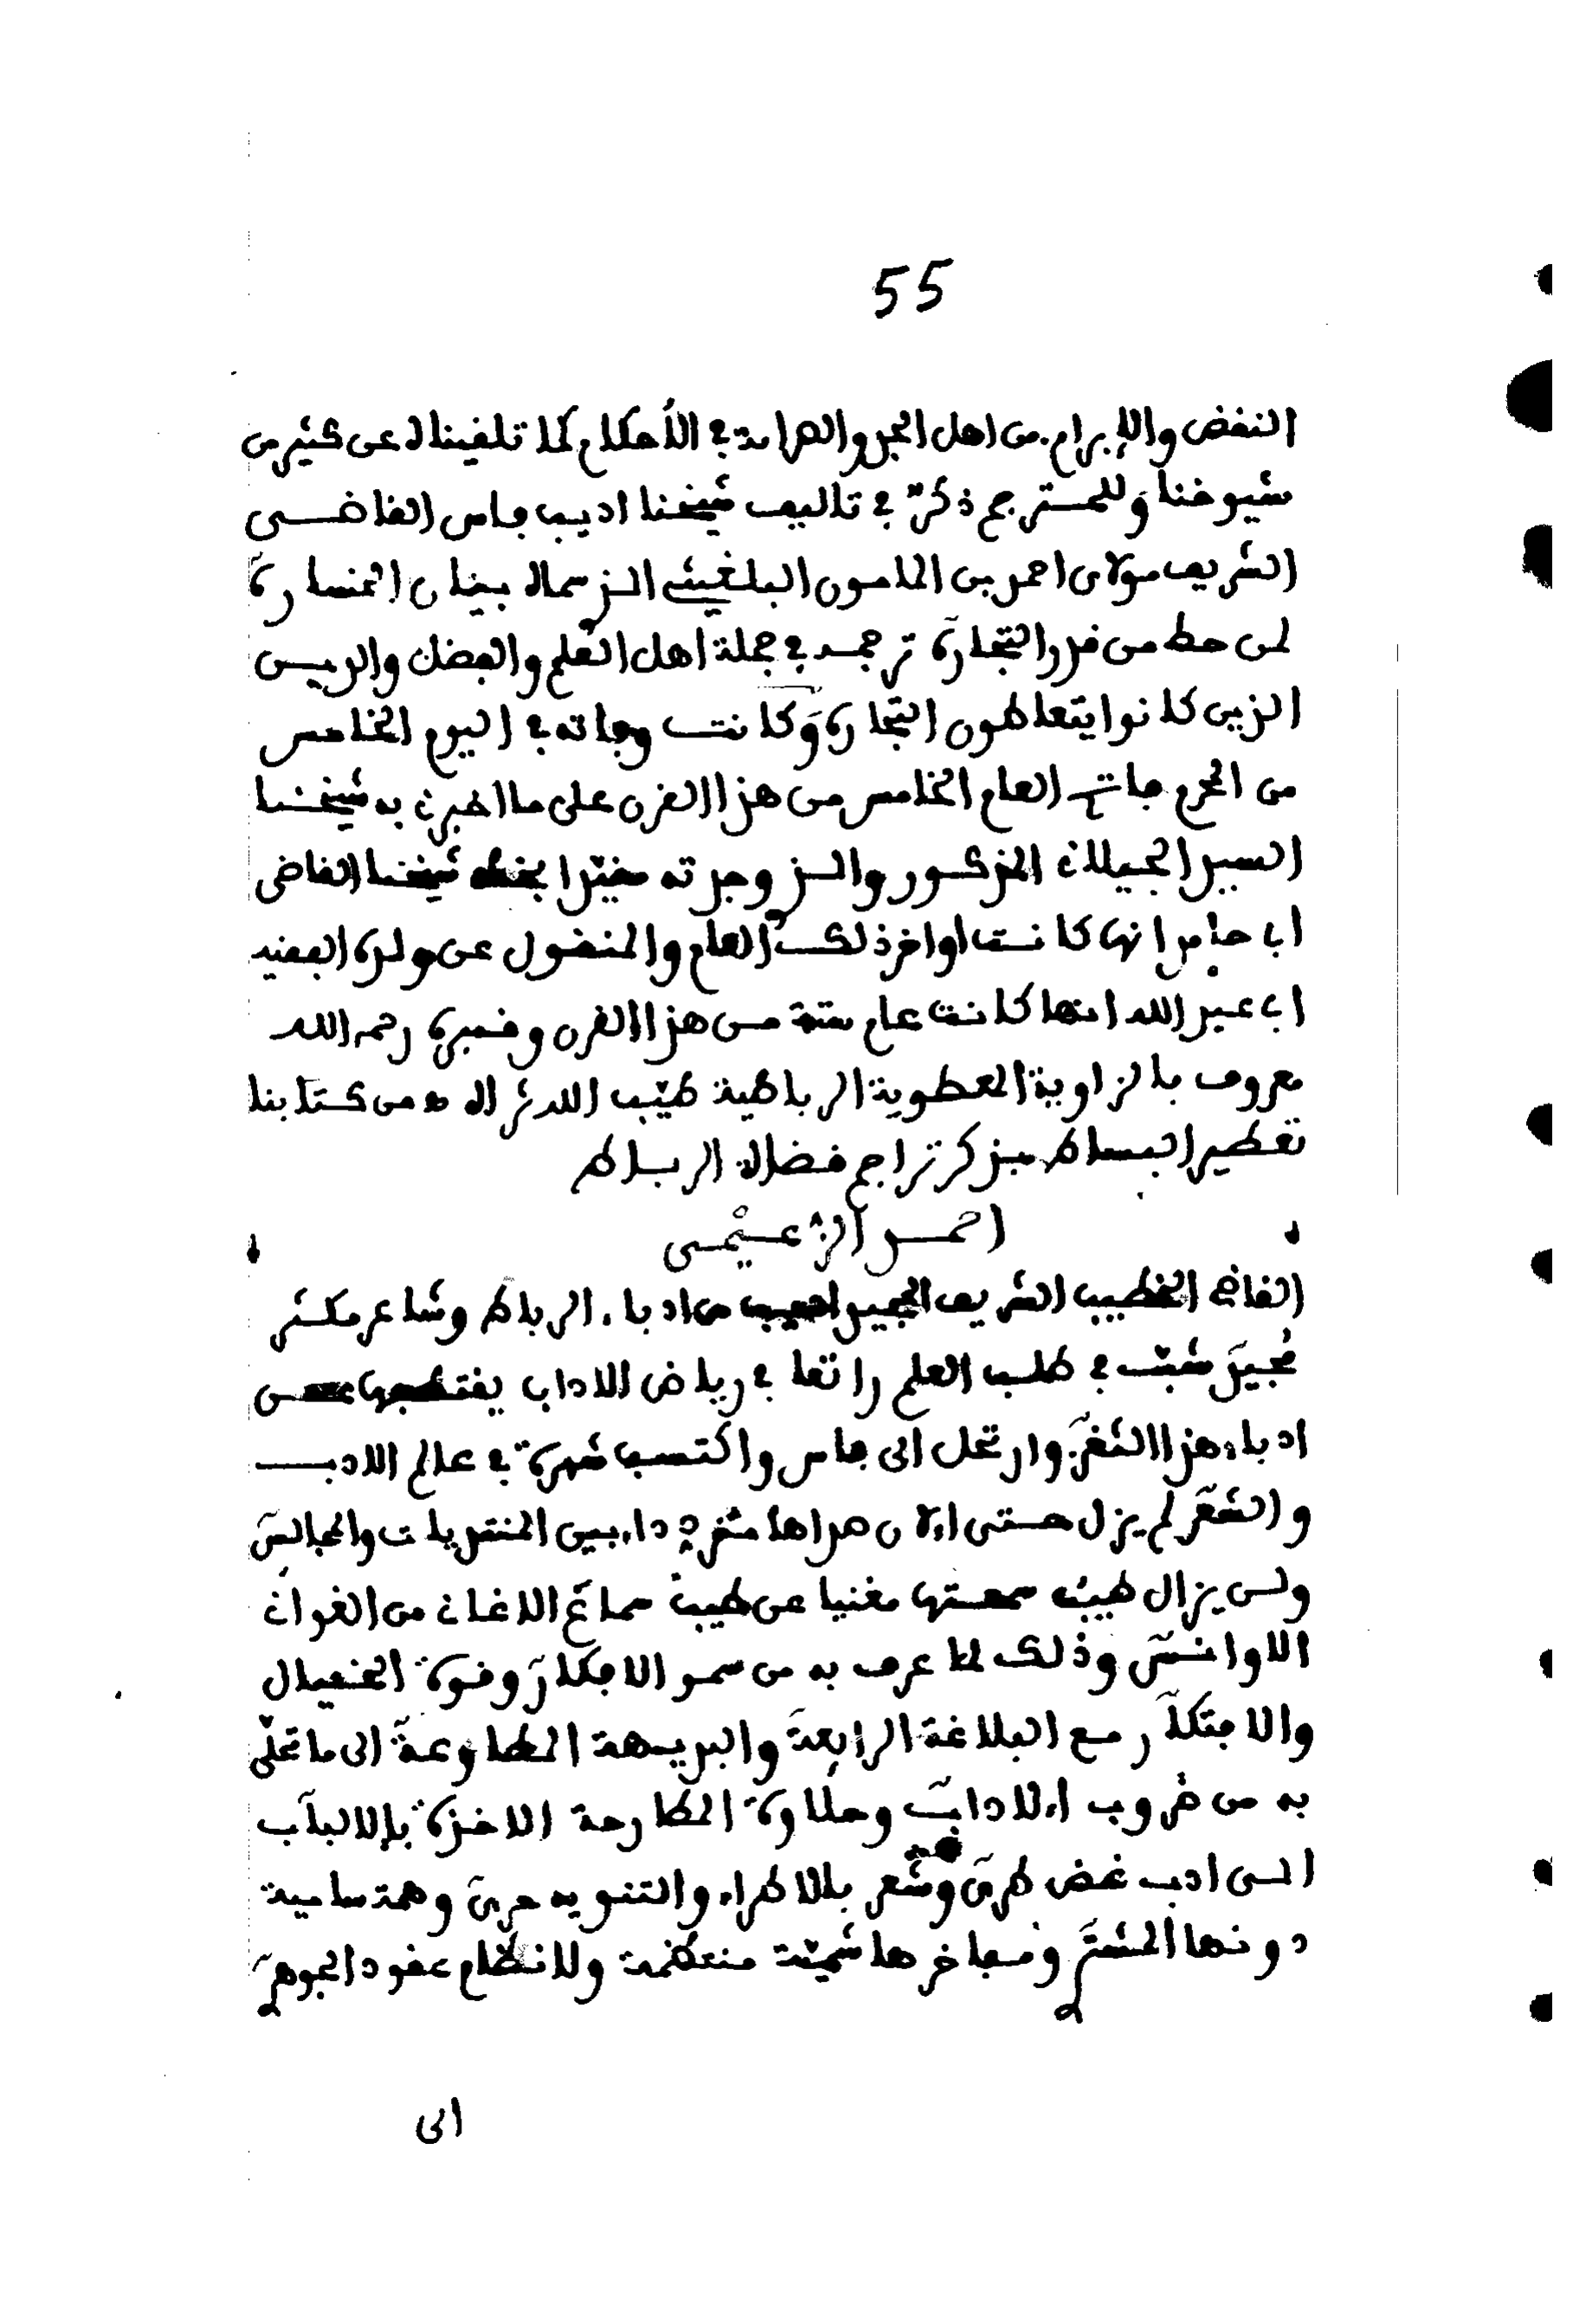 55
النقض والإبرام من اهل الجد والصرامة في الأحكام كما تلقيناه عن كثير من
شيوخنا وللمترجم ذكر في تاليف شيخنا اديب فاس القاضي
الشريف مولاي احمد بن المامون البلغيثي الذي سماه بيان الخسارة
لمن حط من قدر التجارة ترجمه في جملة اهل العلم والفضل والدين
الذين كانوا يتعاطون التجارة وكانت وفاته في اليوم الخامس
من المحرم فاتح العام الخامس من هذا القرن على ما اخبرني به شيخنا
السيد الجيلاني المذكور والذي وجدته مقيدا بخط شيخنا القاضي
ابا حامد انها كانت اواخر ذلك العام والمنقول عن ولده الفقيه
ابي عبد الله انها كانت عام ستة من هذا القرن وقبره رحمه الله
معروف بالزاوية المعطوية الرباطية طيب الله ثراه اه من كتابنا
تعطير البساط بذكر تراجم قضاة الرباط
احمد الزعيمي
القاضي الخطيب الشريف المجيد اديب من ادباء الرباط وشاعر مكثر
مجيد شب في طلب العلم راتعا في رياض الاداب يقتطفها عن
ادباء هذا الثغر وارتحل الى فاس واكتسب شهرة في عالم الادب
والشعر لم يزل حتى الان صداها مترددا بين المنتديات والمجالس
ولن يزال طيب سمعتها مغنيا عن طيب سماع الاغاني من الغواني
الاوانس وذلك لما عرف به من سمو الافكار وقوة الخيال
والابتكار مع البلاغة الرايعة والبديهة المطاوعة الى ما تحلى
به من ضروب الاداب وحلاوة المطارحة الاخذة بالالباب
الى ادب غض طري وشعر بالاطراء والتنويه حري وهمة سامية
دونها المشتري ومفاخرها شمية منتظمة ولانظام عقود الجوهري
الى